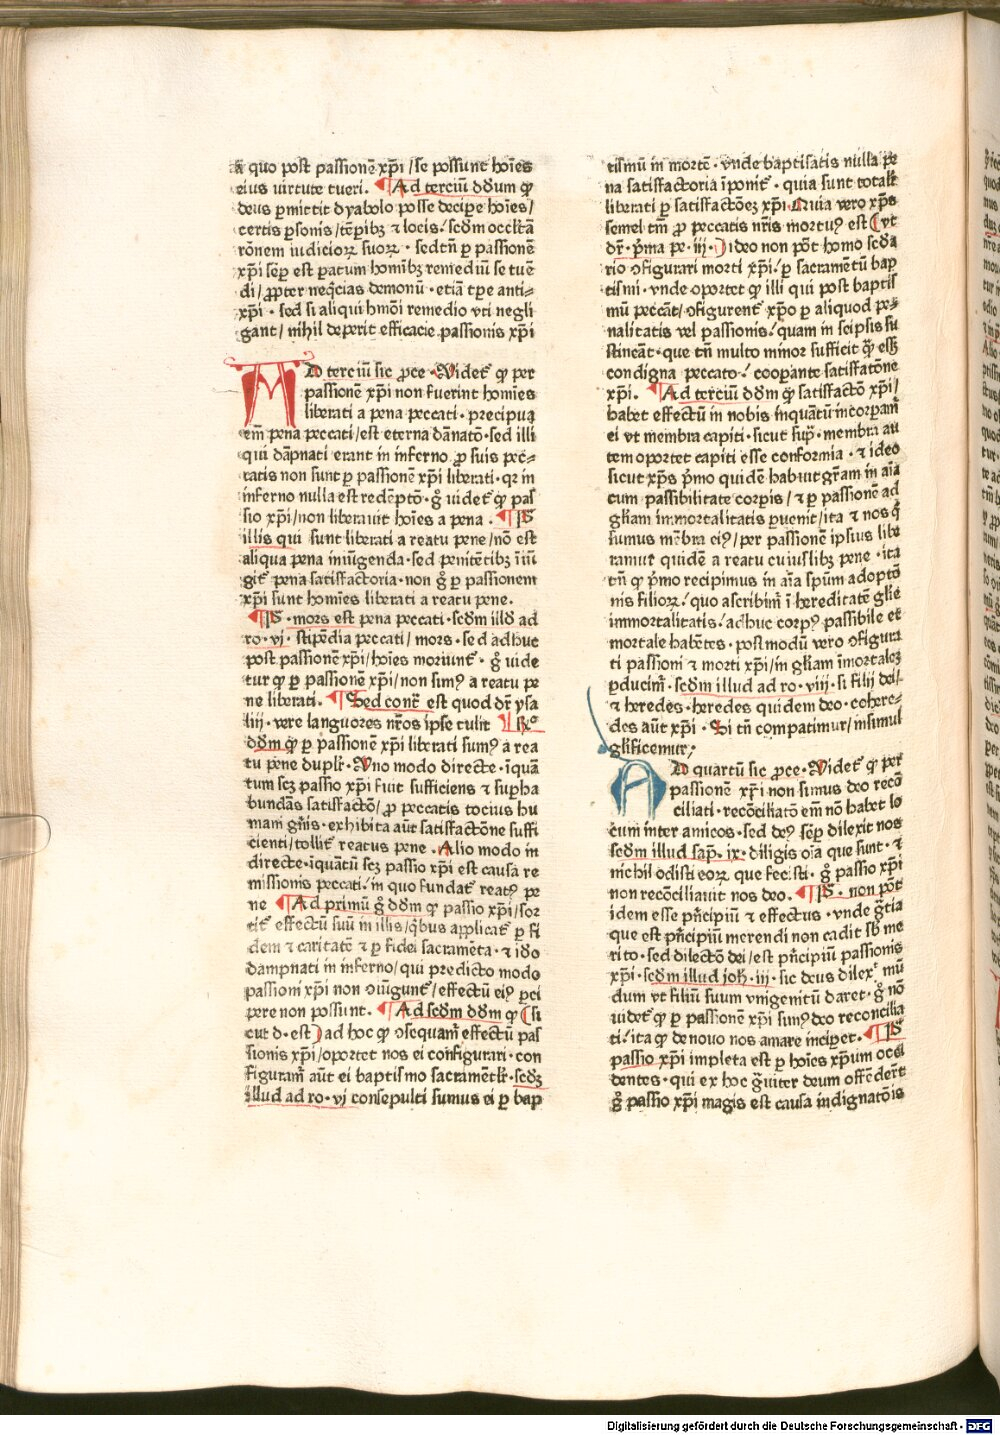 a quo post passionē xp̄i / se possunt hoīes
eius uirtute tueri. ¶ Ad terciū dd̄um qͥ
deus ꝑmittit dyabolo posse decipe hoīes /
certis ꝑsonis / tēꝑibꝫ ⁊ locis / scd̄m occl̄tā
rōnem iudicioꝝ suoꝝ · sed tn̄ ꝑ passionē
xp̄i sēꝑ est ꝑatum homībꝫ remediū se tuē
di / ꝓpter neq̄cias demonū · etiā tꝑe anti⸗
xp̄i · sed si aliqui hmōi remedio vti negli
gant / nihil deperit efficacie passionis xp̄i
AD terciū sic ꝓce · Videt̄ qͥ per
passionē xp̄i non fuerint homies
liberati a pena peccati · precipua
em̄ pena peccati / est eterna dānatō · sed illi
qui dāpnati erant in inferno ꝓ suis pec⸗
catis non sunt ꝑ passionē xp̄i liberati · qꝛ in
inferno nulla est redēptō · gͦ uidet̄ qͥ pas
sio xp̄i / non liberauit hoīes a pena · ¶ P̄
illis qui sunt liberati a reatu pene / nō est
aliqua pena iniūgenda · sed penitētibꝫ īiū
git̄ pena satisfactoria · non gͦ ꝑ passionem
xp̄i sunt homīes liberati a reatu pene.
¶ P̄ · mors est pena peccati · scd̄m illd̄ ad
ro · vj · stipēdia peccati / mors · sed adhuc
post passionē xp̄i / hoīes moriunt̄ · gͦ uide
tur qͥ ꝑ passionē xp̄i / non simꝰ a reatu pe
ne liberati. ¶ Sed cont̄ est quod dr̄ ysa
liij · vere languores nr̄os ipse tulit ¶ Rͦ
dd̄m qͥ ꝑ passionē xp̄i liberati sumꝰ a rea
tu pene dupl̄r · Vno modo directe · īquā
tum scꝫ passio xp̄i fuit sufficiens ⁊ suꝑha
bundās satisfactō / ꝓ peccatis tocius hu
mani gn̄is · exhibita aūt satisfactōne suffi
cienti / tollit̄ reatus pene · Alio modo in
directe · īquātū scꝫ passio xp̄i est causa re
missionis peccati / in quo fundat̄ reatꝰ pe
ne ¶ Ad primū gͦ dd̄m qͥ passio xp̄i / sor
tit̄ effectū suū in illis / qͥbus applicat̄ ꝑ fi
dem ⁊ caritatē ⁊ ꝑ fidei sacramēta · ⁊ ido
dampnati in inferno / qui predicto modo
passioni xp̄i non ꝯiūgunt̄ / effectū eiꝰ ꝑci
pere non possunt. ¶ Ad scd̄m dd̄m qͥ ( si
cut d · est ) ad hoc qͥ ꝯsequam̄ effectū pas
sionis xp̄i / oportet nos ei configurari · con
figuram̄ aūt ei baptismo sacramētl̄r · scd̄ꝫ
illud ad ro · vj consepulti sumus ei ꝑ bap
tismū in mortē · vnde baptisatis nulla pe
na satisfactoria īponit̄ · quia sunt totalr̄
liberati ꝑ satisfactōeꝫ xp̄i. Quia vero xp̄s
semel tm̄ ꝓ peccatis nr̄is mortuꝰ est ( vt
dr̄ · pͥma pe · iij · ) ideo non pōt homo secd̄a
rio ꝯfigurari morti xp̄i / ꝑ sacramētū bap
tismi · vnde oportet qͥ illi qui post baptis
mū peccāt / ꝯfigurent̄ xp̄o ꝑ aliquod pe⸗
nalitatis vel passionis / quam in seipsis su
stineāt · que tn̄ multo minor sufficit qͣ̄ ess̄
condigna peccato / cooꝑante satisfatōne
xp̄i. ¶ Ad terciū dd̄m qͥ satisfactō xp̄i /
habet effectū in nobis inquātū incorꝑam̄
ei vt membra capiti · sicut supͣ · membra au
tem oportet capiti esse conformia · ⁊ ideo
sicut xp̄s pͥmo quidē habuit gr̄am in aīa
cum passibilitate corꝑis / ⁊ ꝑ passionē ad
gl̄iam immortalitatis ꝑuenit / ita ⁊ nos qͥ
sumus mēbra eiꝰ / per passionē ipsius libe
ramur quidē a reatu cuiuslibꝫ pene · ita
tn̄ qͥ pͥmo recipimus in aīa spūm adoptō
nis filioꝝ / quo ascribim̄ ī hereditatē gl̄ie
immortalitatis / adhuc corpꝰ passibile et
mortale habētes · postmodū vero ꝯfigura
ti passioni ⁊ morti xp̄i / in gl̄iam īmortaleꝫ
ꝑducim̄ · scd̄m illud ad ro · viij · si filij dei /
⁊ heredes · heredes quidem deo · cohere⸗
des aūt xp̄i · Si tn̄ compatimur / insimul
gl̄ificemur /
AD quartū sic ꝓce · Videt̄ qͥ per
passionē xp̄i non simus deo recō
ciliati · recōciliatō em̄ nō habet lo
cum inter amicos · sed deꝰ sēꝑ dilexit nos
scd̄m illud sap̄ · ix · diligis oīa que sunt · ⁊
nichil odisti eoꝝ que fecisti · gͦ passio xp̄i
non recōciliauit nos deo. ¶ P̄ · non pōt
idem esse pͥncipiū ⁊ effectus · vnde gr̄tia
que est pͥncipiū merendi non cadit sb̄ me
rito · sed dilectō dei / est pͥncipiū passionis
xp̄i · scd̄m illud joh̄ · iij · sic deus dilexͭ mū
dum vt filiū suum vnigenitū daret · gͦ nō
uidet̄ qͥ ꝑ passionē xp̄i simꝰ deo reconcilia
ti / ita qͥ de nouo nos amare inciꝑet. ¶ P̄
passio xp̄i impleta est ꝑ hoīes xp̄um occi
dentes · qui ex hoc gͣuiter deum offēder̄t
gͦ passio xp̄i magis est causa indignatōis
Digitalisierung gefördert durch die Deutsche Forschungsgemeinschaft - DFG